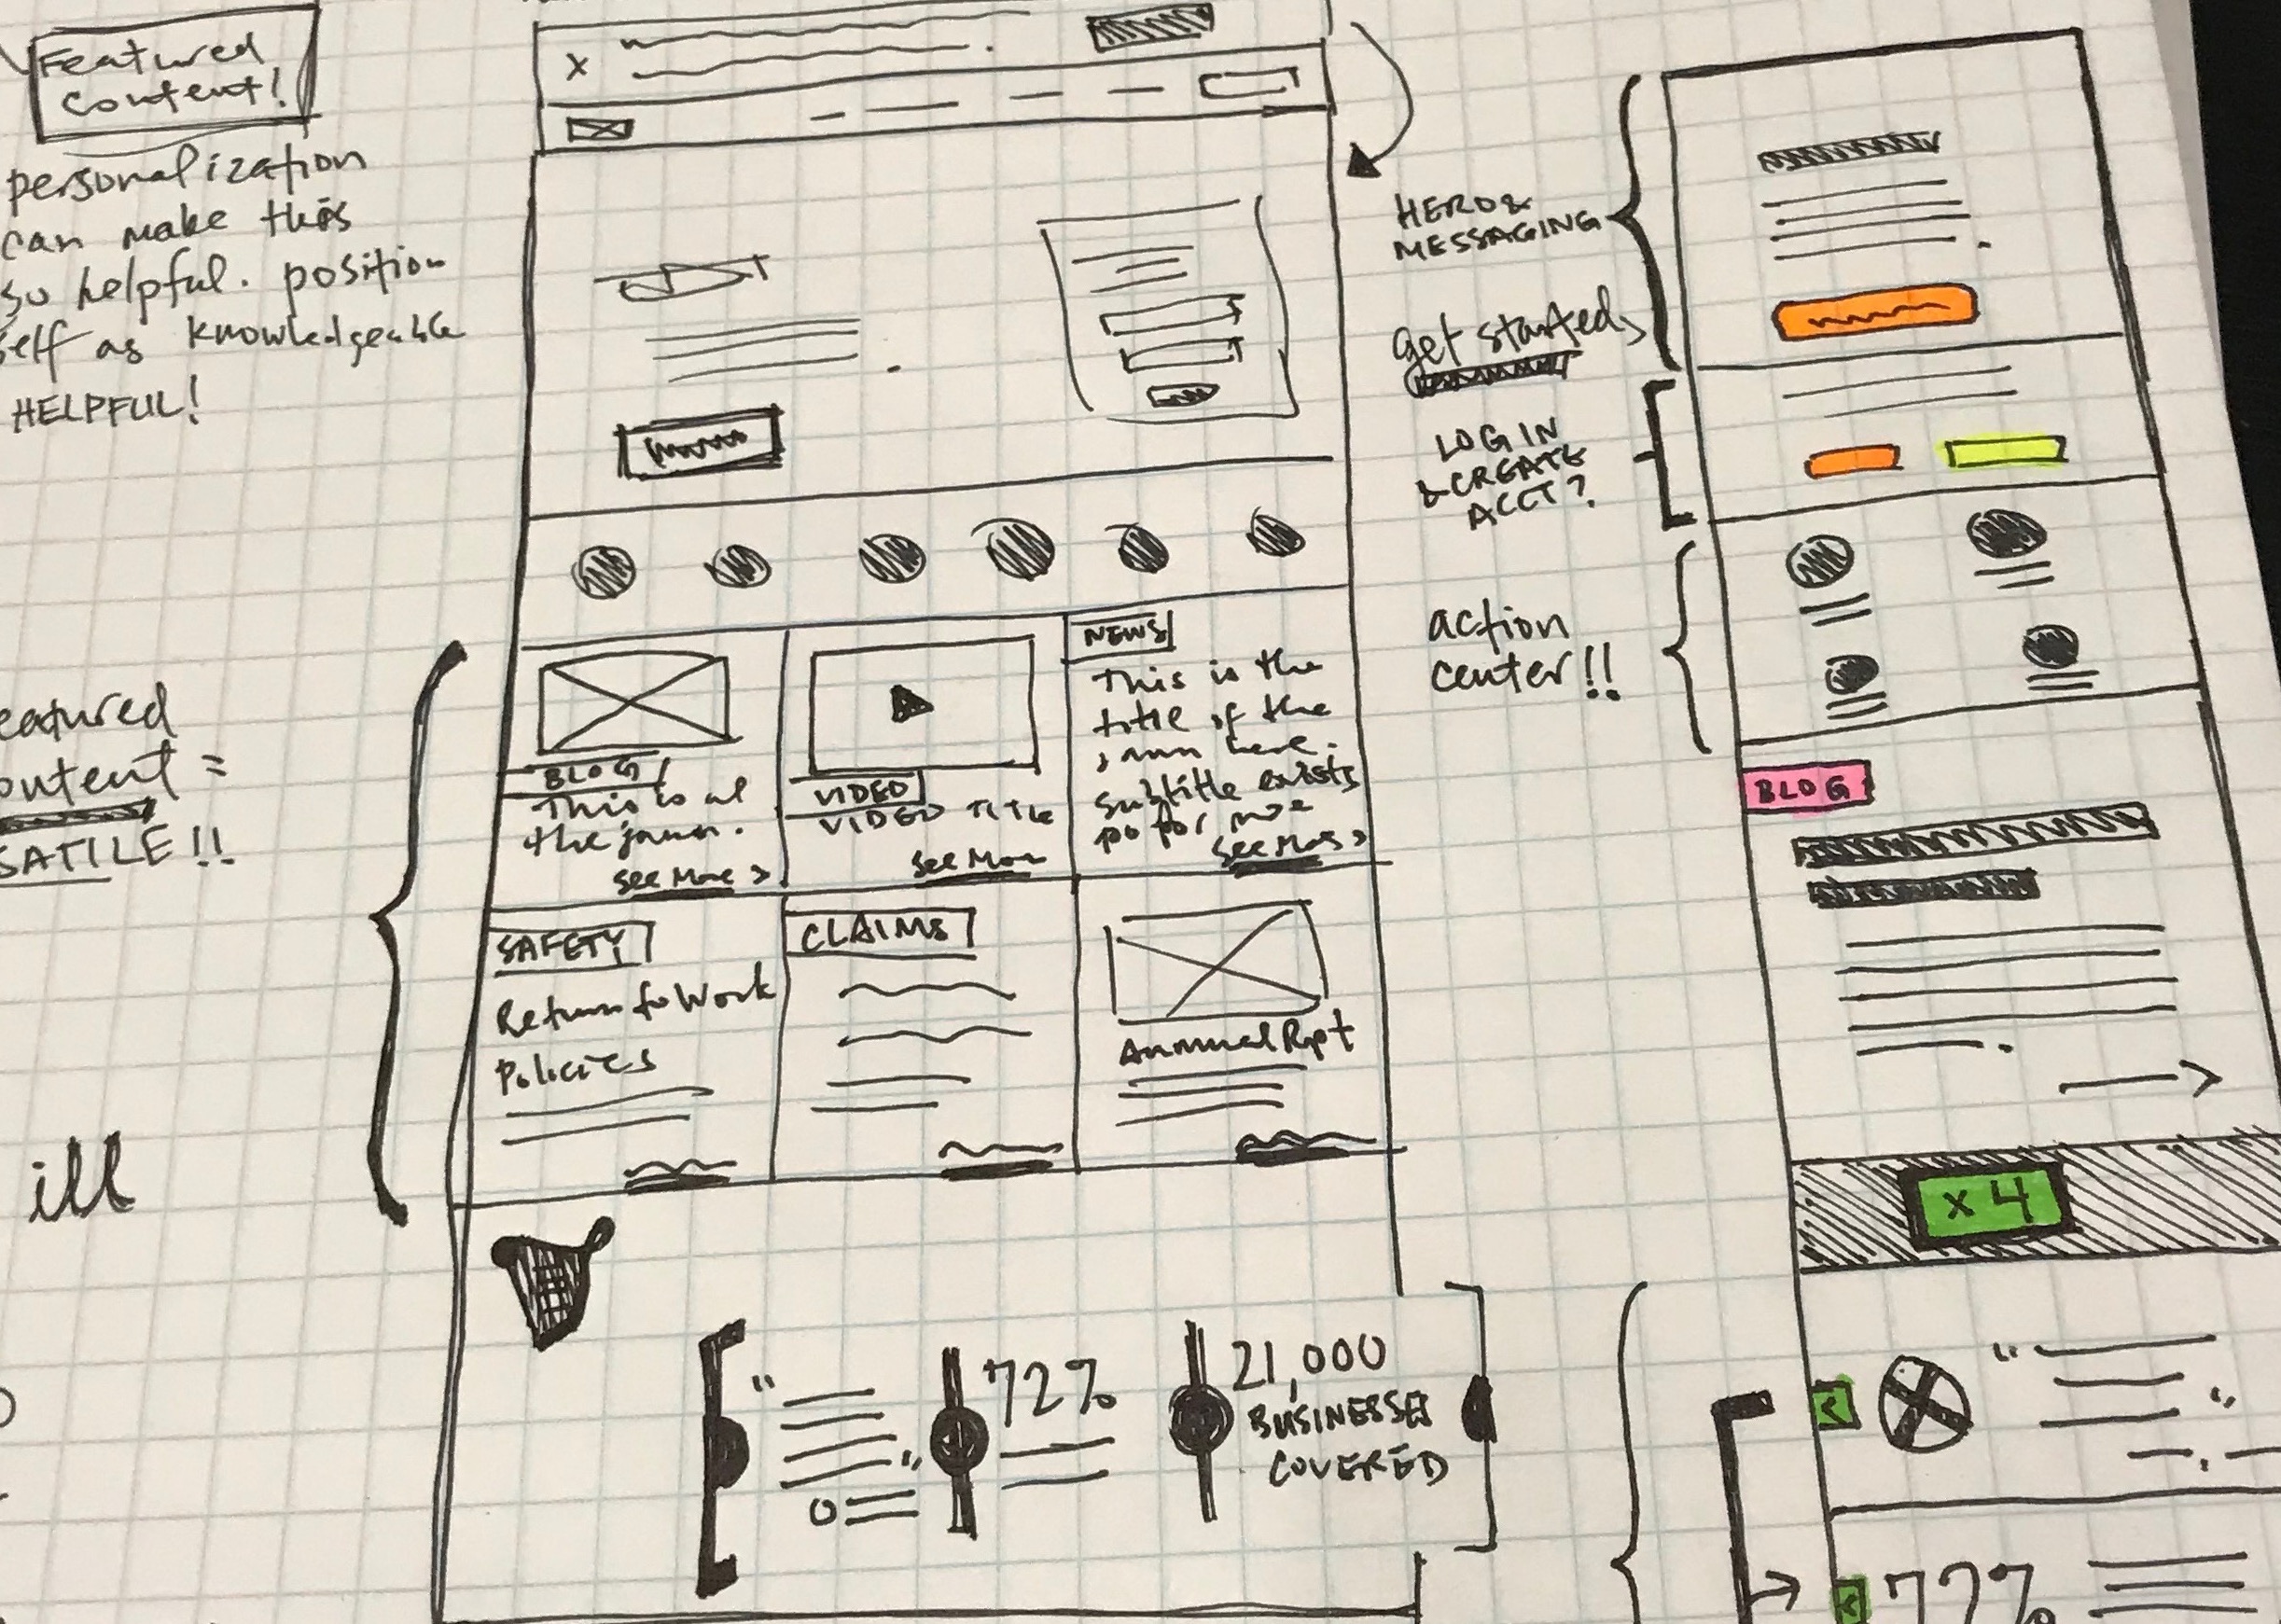 Featured
Content!
personalization
can make this
so helpful. position
self as knowledgeable
HELPFUL!
eatured
ontent =
SATILE!!
ill
x
BLOG
This is
the
See More >
VIDEO
VIDEO TITLE
See More
NEWS
This is the
title of the
here.
subtitle exists
See More >
SAFETY
Return to Work
Policies
CLAIMS
Annual Rept
72%
21,000
BUSINESSES
COVERED
HERO &
MESSAGING
get started
LOG IN
& CREATE
ACCT?
action
center!!
BLOG
x 4
<
72%